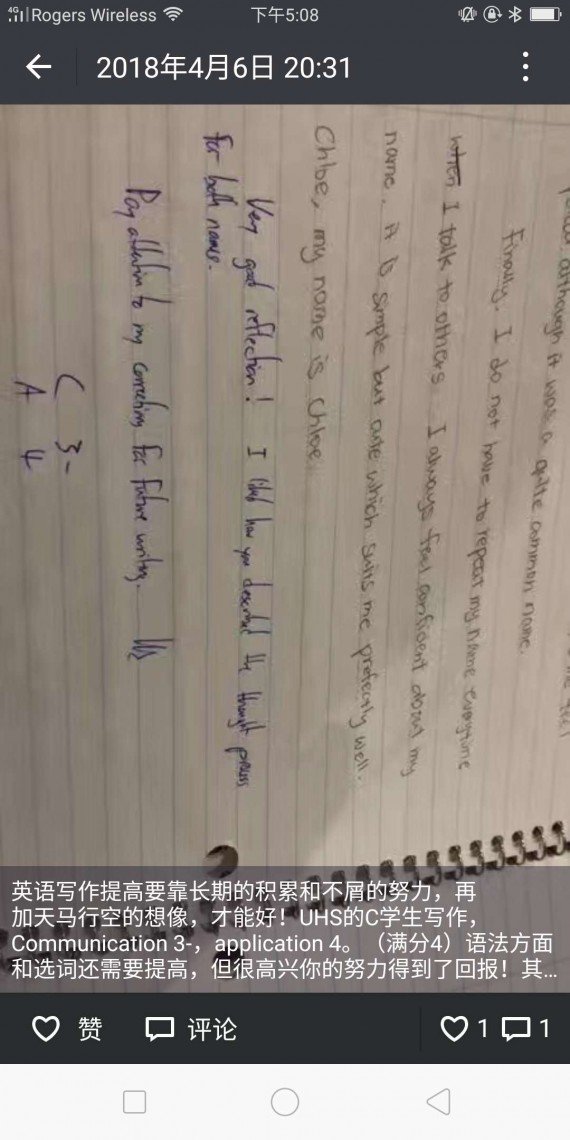 4G Rogers Wireless
下午5:08
2018年4月6日 20:31
although it was a quite common name.
Finally, I do not have to repeat my name everytime
when I talk to others. I always feel confident about my
name. it is simple but cute which suits me prefectly well.
Chloe, my name is Chloe.
Very good reflection! I liked how you described the thought process
for both names.
Pay attention to my correcting for future writing.
C 3-
A 4
英语写作提高要靠长期的积累和不屑的努力，再
加天马行空的想像，才能好！UHS的C学生写作，
Communication 3-，application 4。（满分4）语法方面
和选词还需要提高，但很高兴你的努力得到了回报！其...
赞
评论
1
1